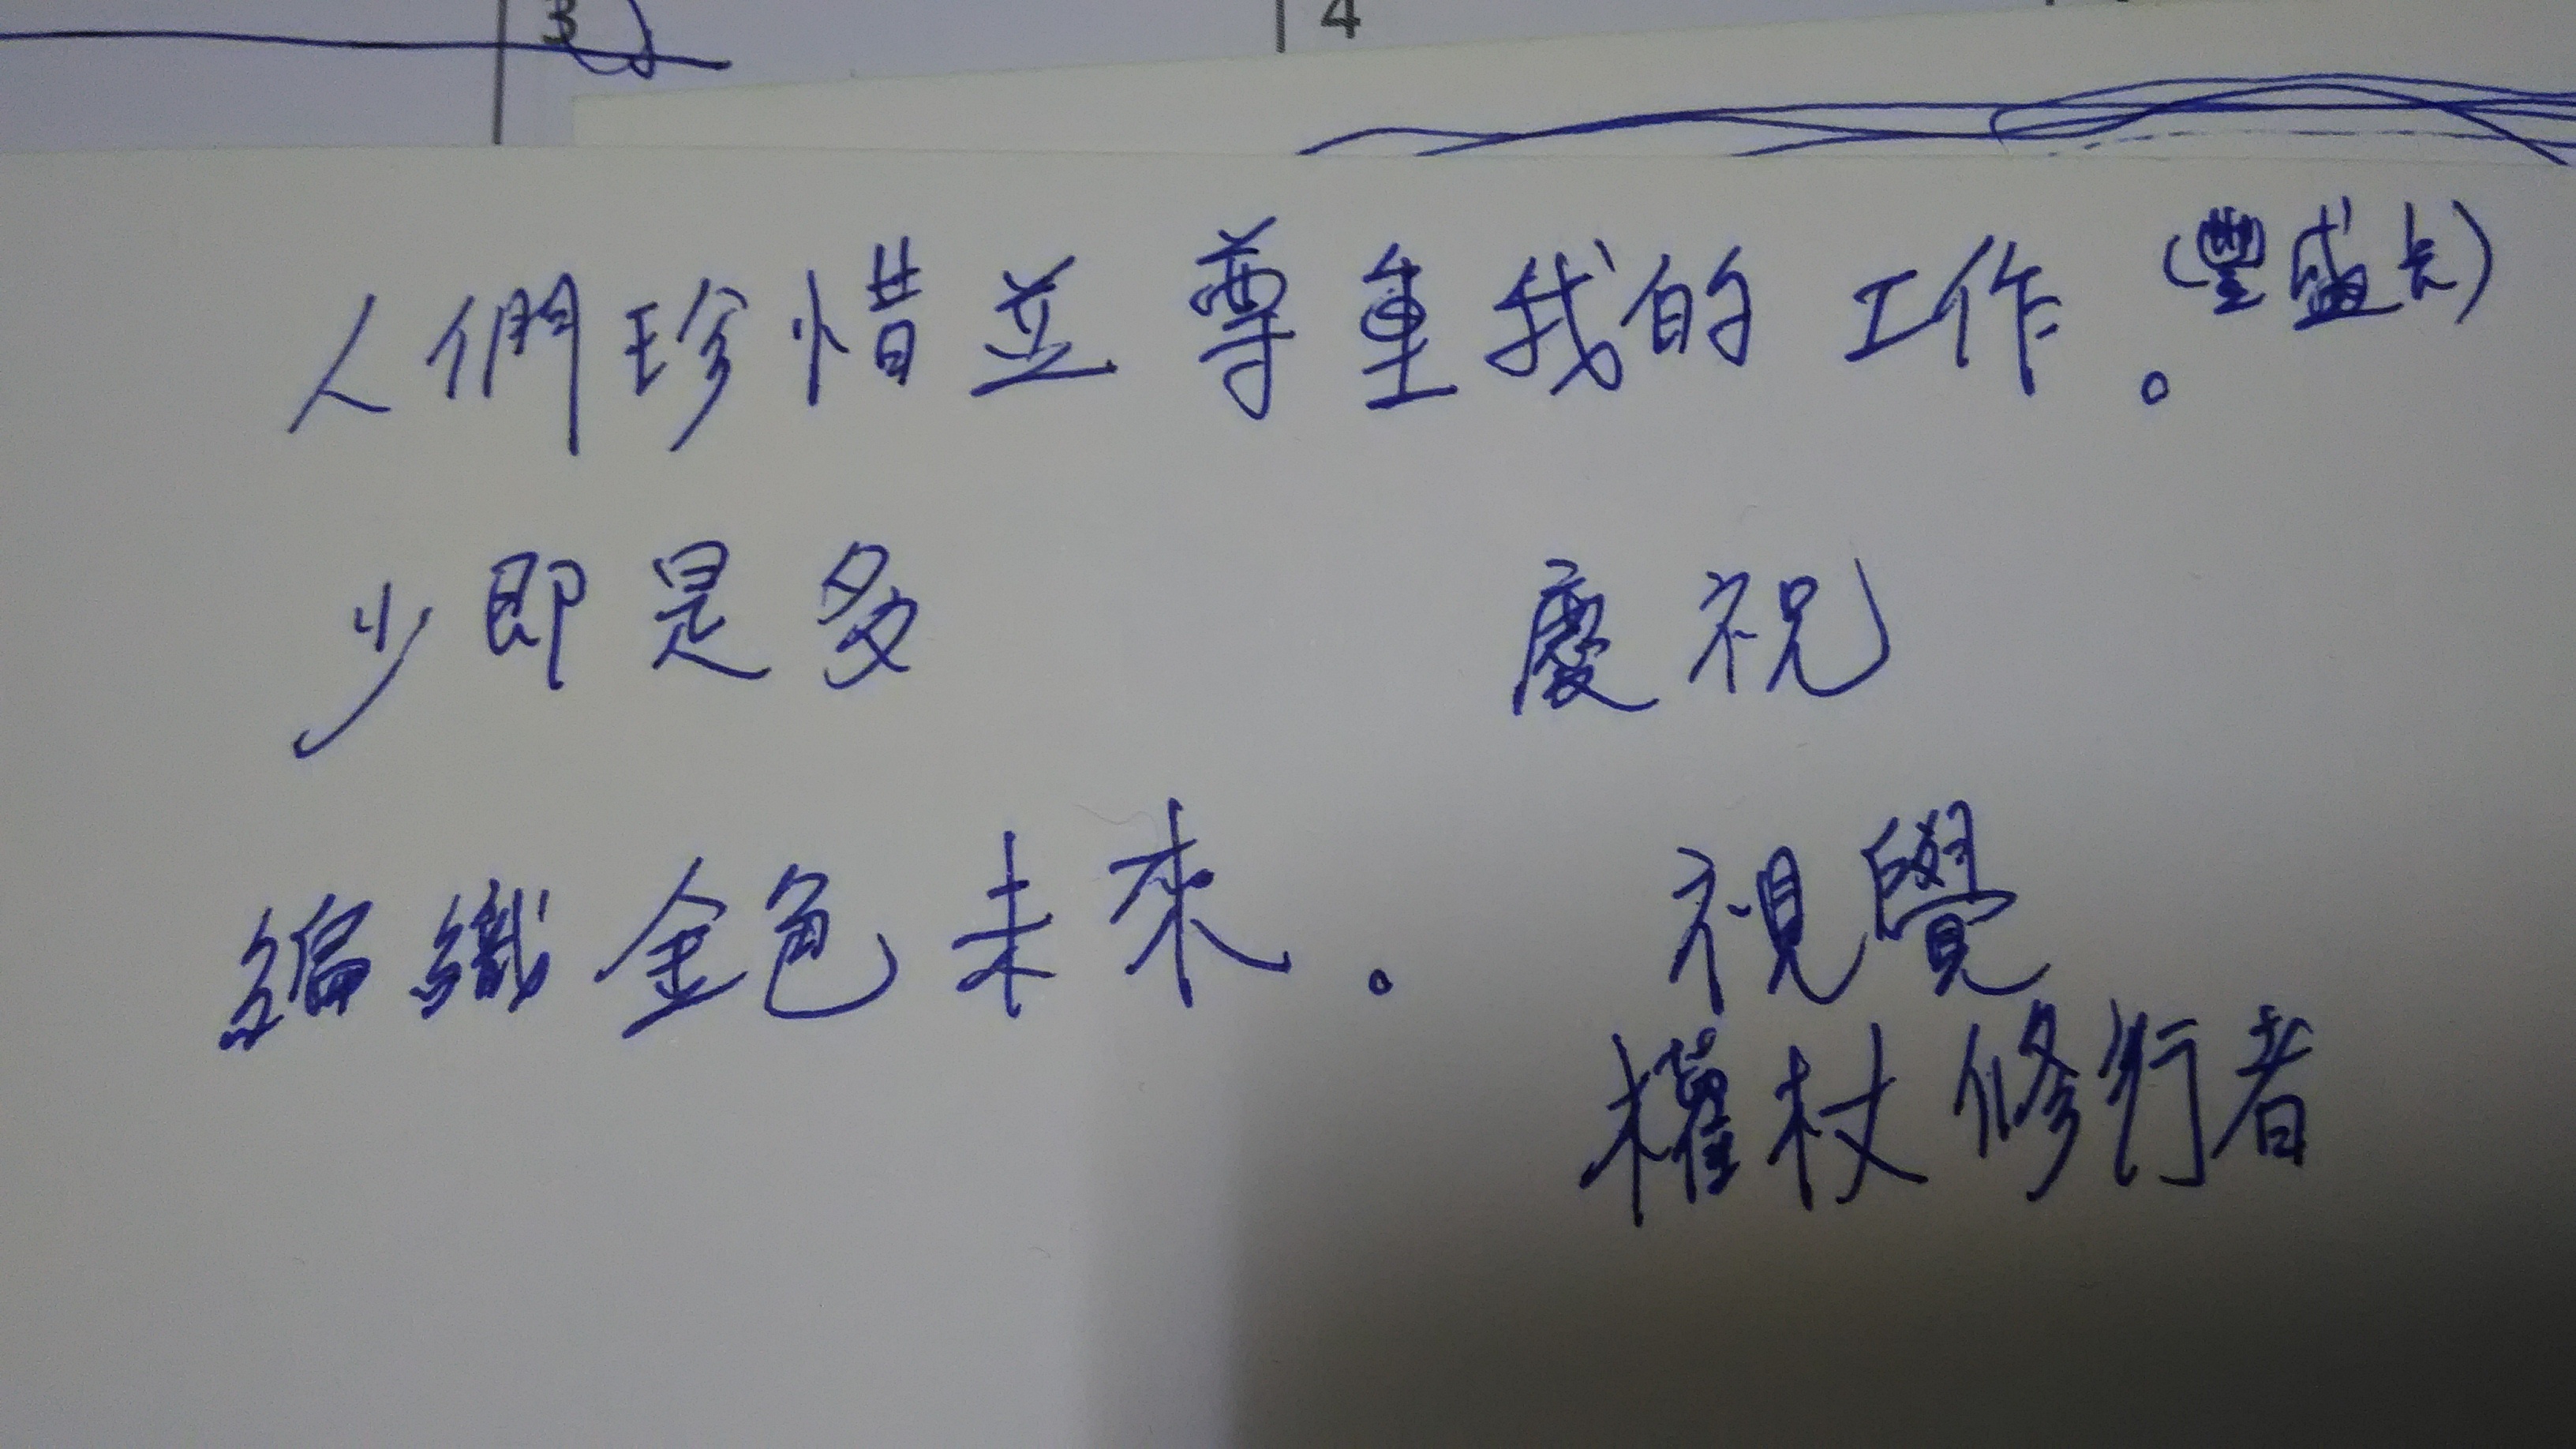 3 4
人們珍惜並尊重我的工作。(豐盛卡)
少即是多 慶祝
編織金色未來。 視覺
權杖修行者